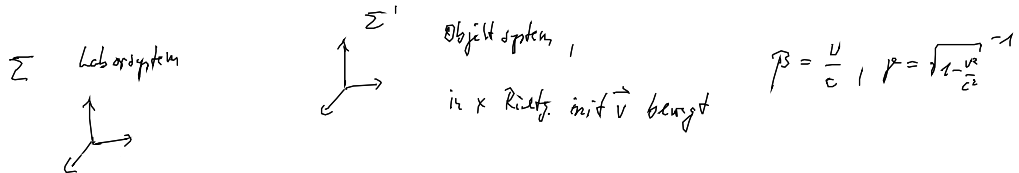 Σ Laborsystem
Σ' Objektsystem,
in x Richtg. mit v⃗ bewegt
β = v/c , γ = √(1 - v²/c²)⁻¹